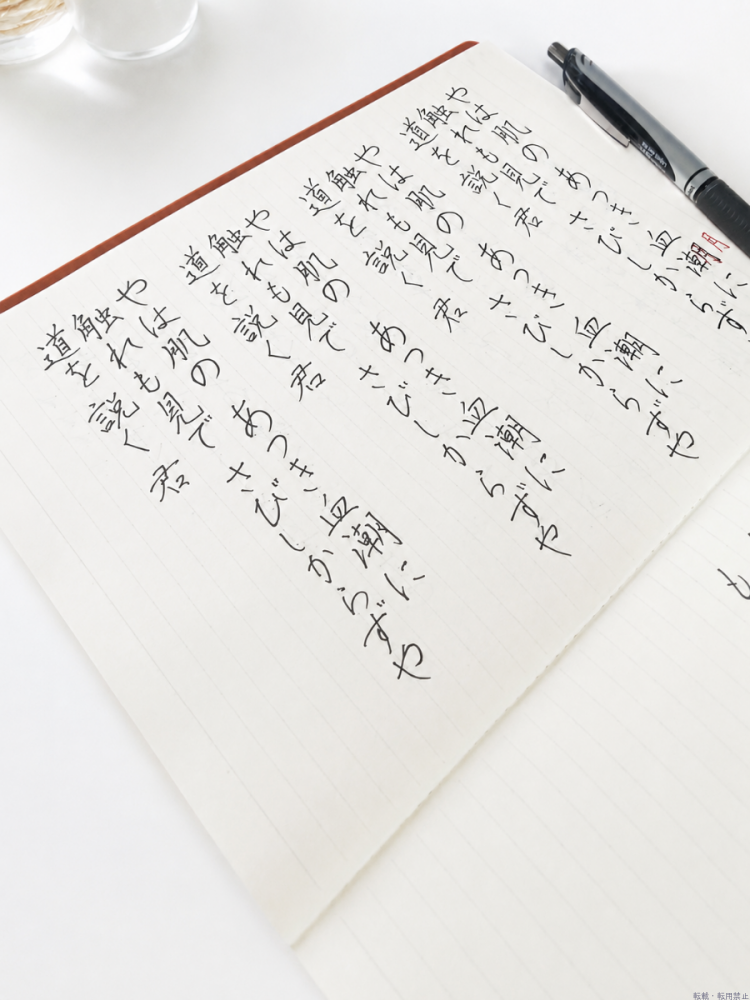 やは肌の あつき血潮に
月月
触れも見で さびしからず
道を説く君
やは肌の あつき血潮に
触れも見で さびしからずや
道を説く君
やは肌の あつき血潮に
触れも見で さびしからずや
道を説く君
やは肌の あつき血潮に
触れも見で さびしからずや
道を説く君
も
転載・転用禁止